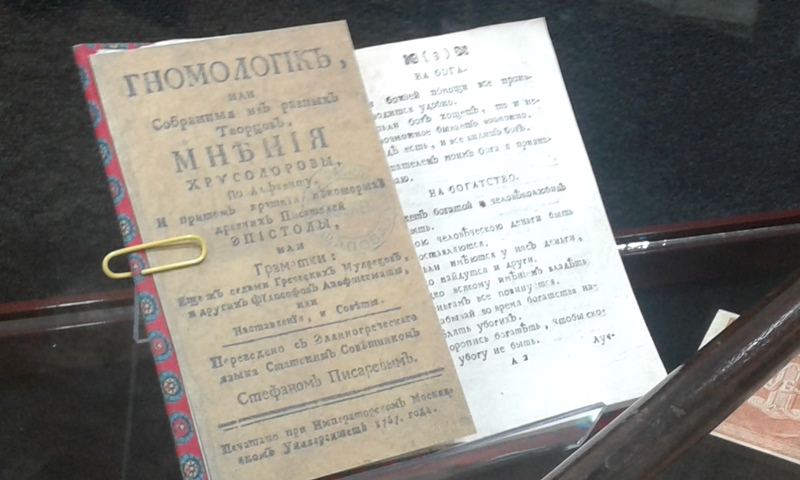 ГНОМОЛОГІКЪ,
или
Собранныя изъ разныхъ
Творцовъ,
МНѢНІЯ
ХРУСОЛОРОВЫ,
По Алфавиту,
И притомъ кратка некоторыхъ
древнихъ Писателей
ЭПІСТОЛЫ,
или
Грамотки:
Еще жъ седми Греческихъ Мудрецовъ,
и другихъ Философовъ Апофѳегматы,
или
Наставленія, и Совѣты.
Переведено съ Эллиногреческаго
языка Статскимъ Совѣтникомъ
Стефаномъ Писаревымъ.
Печатано при Императорскомъ Москов-
скомъ Университетѣ 1767. года.
(3)
НА БОГА.
божіей помощи все произ-
водится удобно.
богъ хощетъ, то и не-
возможное бываетъ возможно.
есть, и все видитъ богъ.
моимъ бога я призы-
ваю.
НА БОГАТСТВО.
богатой человѣколюбивъ
быть.
человѣческою деньги быть
поставляются.
имеются у насъ деньги,
найдутся и други.
всякому имѣніемъ владѣть
деньгамъ все повинуется.
во время богатства
убогихъ.
богатѣть, чтобы скоро
убогу не быть.
А 2
Луч-